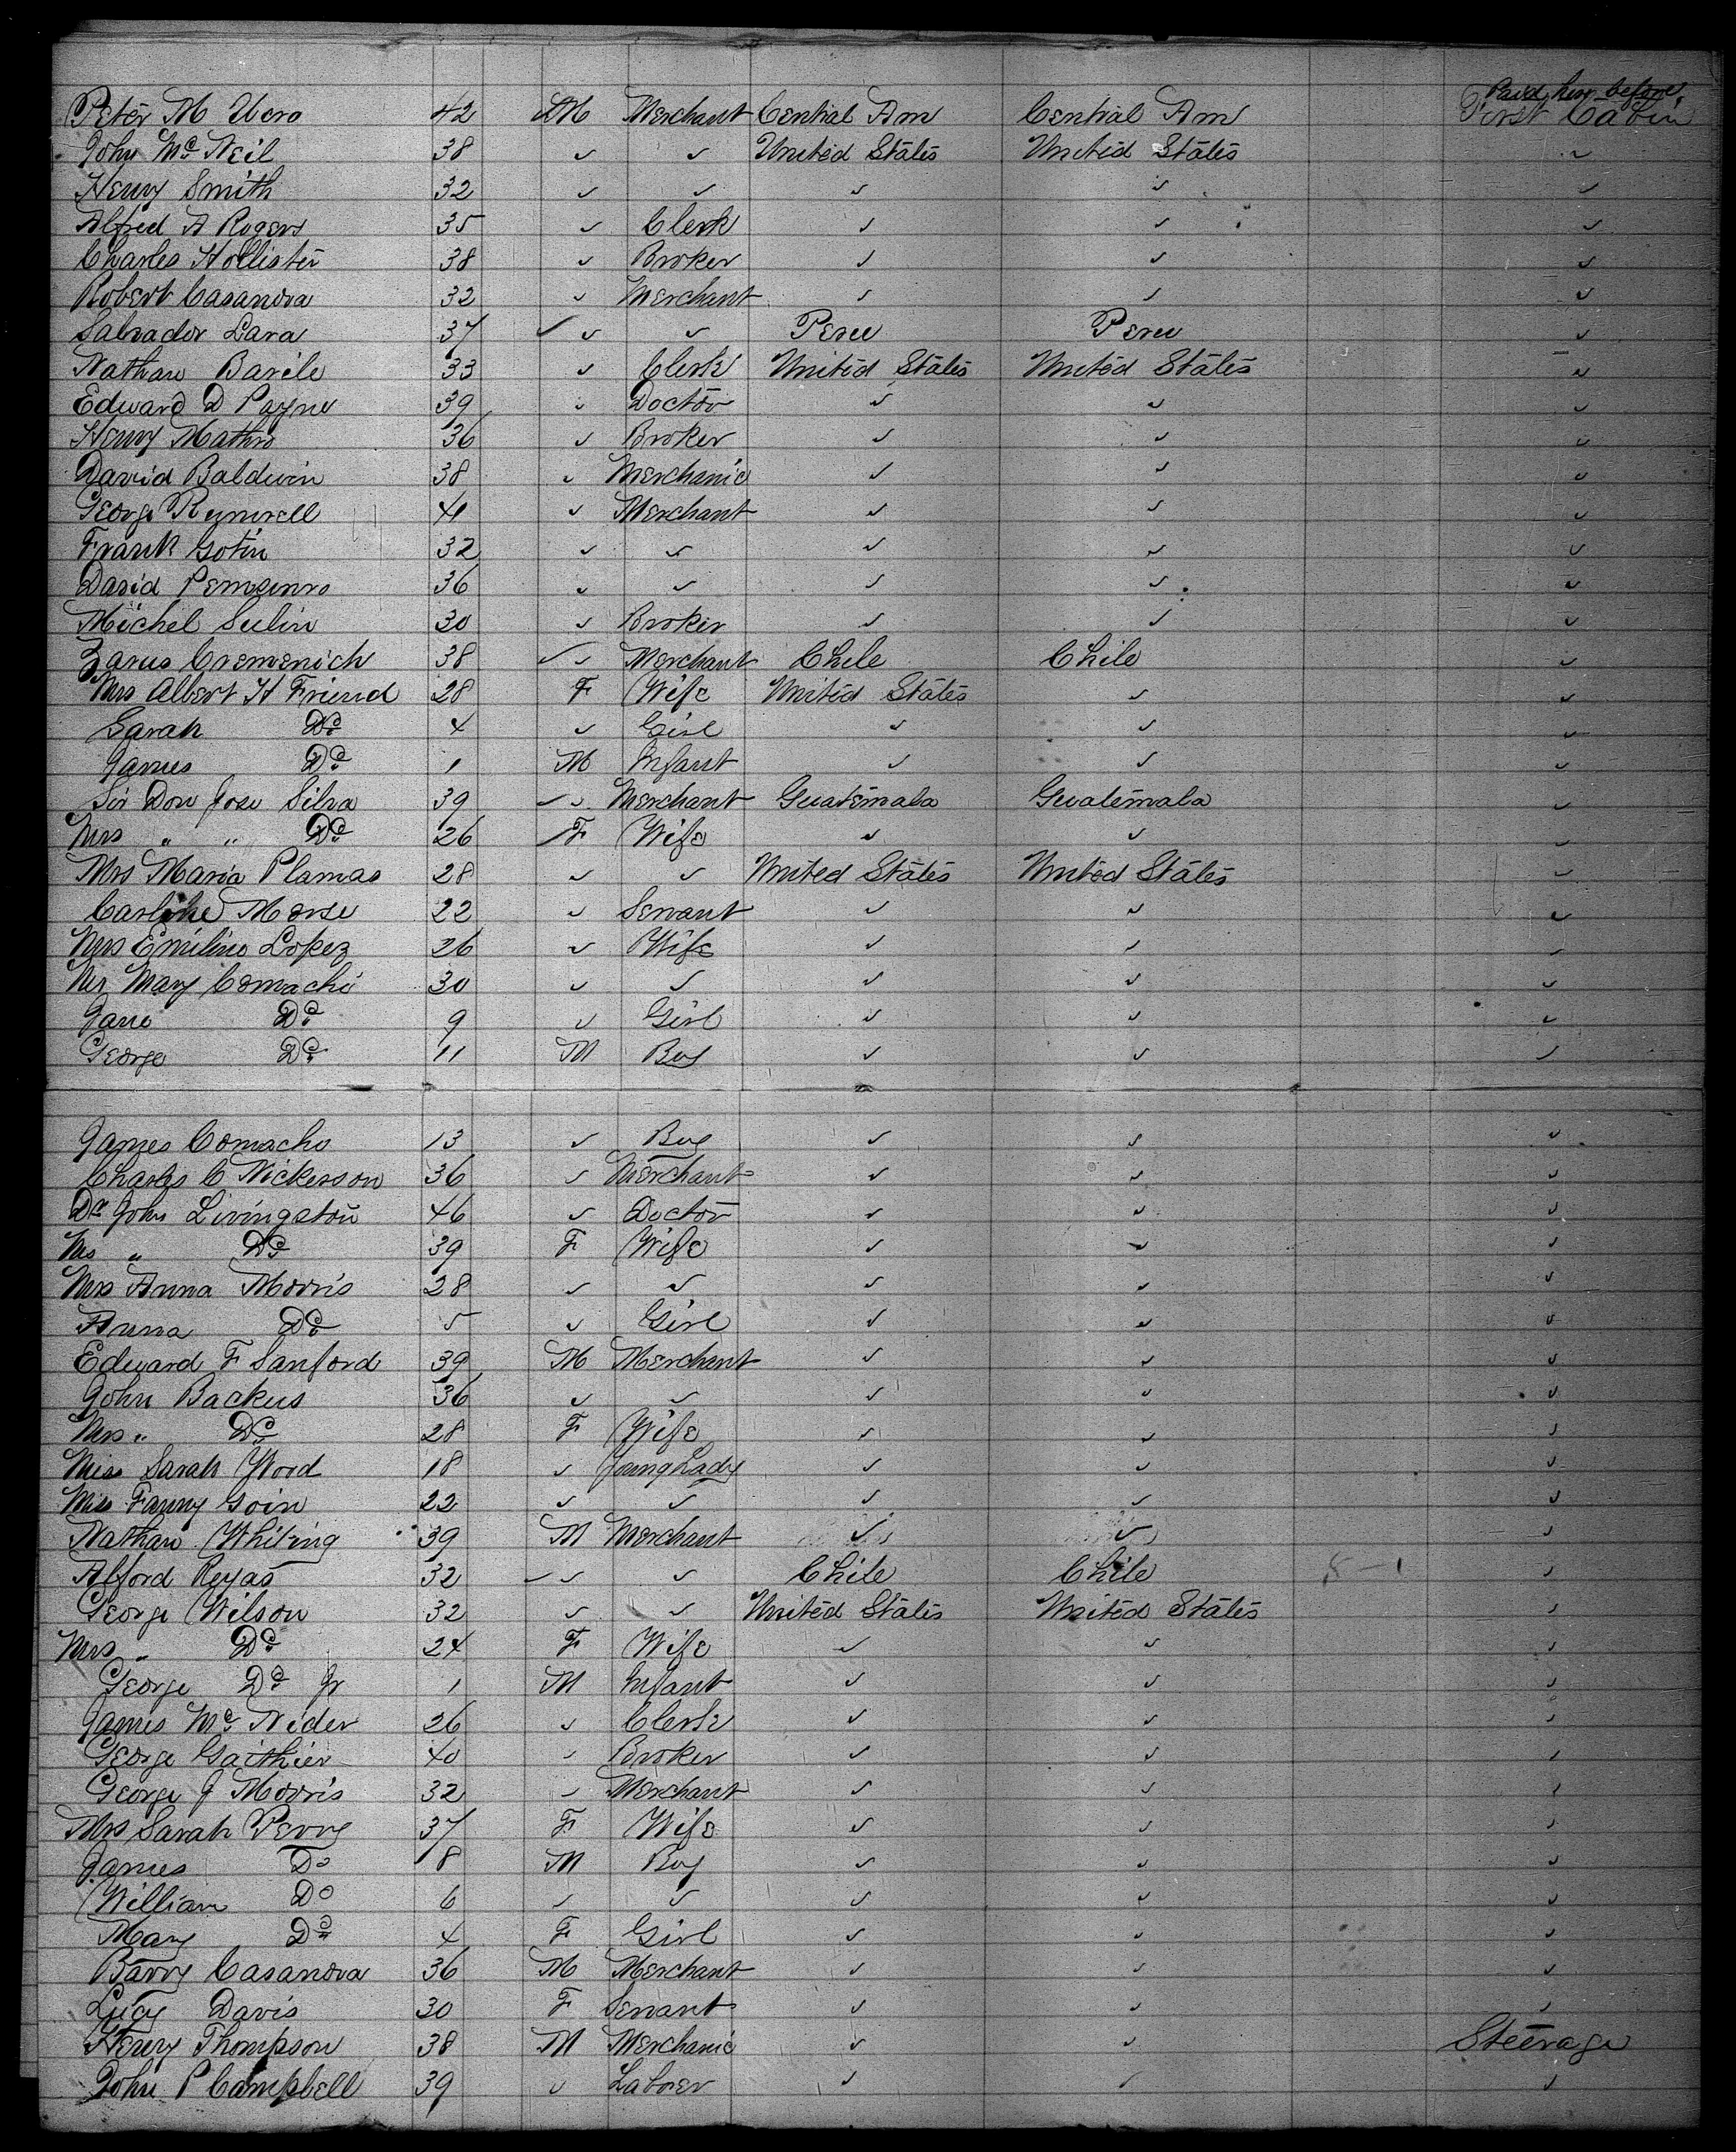 Paid here before
Peter M Ucro 42 M Merchant Central Am Central Am First Cabin
John Mc Neil 38 ✓ ✓ United States United States ✓
Henry Smith 32 ✓ ✓ ✓ ✓ ✓
Alfred A Rogers 35 ✓ Clerk ✓ ✓ ✓
Charles Hollister 38 ✓ Broker ✓ ✓ ✓
Robert Casanova 32 ✓ Merchant ✓ ✓ ✓
Salvador Lara 37 ✓ ✓ ✓ Peru Peru ✓
Nathan Barile 33 ✓ Clerk United States United States ✓
Edward D Payne 39 ✓ Doctor ✓ ✓ ✓
Henry Mathro 36 ✓ Broker ✓ ✓ ✓
David Baldwin 38 ✓ Merchanic ✓ ✓ ✓
George 41 ✓ Merchant ✓ ✓ ✓
Frank Gotin 32 ✓ ✓ ✓ ✓ ✓
David 36 ✓ ✓ ✓ ✓ ✓
Michel Sulin 30 ✓ Broker ✓ ✓ ✓
Zarus Cremenich 38 ✓ ✓ Merchant Chile Chile ✓
Mrs Albert H Friend 28 F Wife United States ✓ ✓
Sarah Do 4 ✓ Girl ✓ ✓ ✓
James Do 1 M Infant ✓ ✓ ✓
Sir Don Jose Silva 39 ✓ ✓ Merchant Guatemala Guatemala ✓
Mrs " " Do 26 ✓ F Wife ✓ ✓ ✓
Mrs Maria Plamas 28 ✓ ✓ United States United States ✓
Carline Morse 22 ✓ Servant ✓ ✓ ✓
Mrs Emilino Lopez 26 ✓ Wife ✓ ✓ ✓
Mrs Mary Comacho 30 ✓ ✓ ✓ ✓ ✓
Jane Do 9 ✓ Girl ✓ ✓ ✓
George Do 11 M Boy ✓ ✓ ✓
James Comacho 13 ✓ Boy ✓ ✓ ✓
Charles C Nickerson 36 ✓ Merchant ✓ ✓ ✓
Dr John Livingston 46 ✓ Doctor ✓ ✓ ✓
Mrs " Do 39 F Wife ✓ ✓ ✓
Mrs Anna Morris 28 ✓ ✓ ✓ ✓ ✓
Anna Do 5 ✓ Girl ✓ ✓ ✓
Edward F Sanford 39 M Merchant ✓ ✓ ✓
John Backus 36 ✓ ✓ ✓ ✓ ✓
Mrs " Do 28 F Wife ✓ ✓ ✓
Miss Sarah Wood 18 ✓ Young Lady ✓ ✓ ✓
Miss Fanny Goin 22 ✓ ✓ ✓ ✓ ✓
Nathan Whiting 39 M Merchant ✓ ✓ ✓
Alford Reyas 32 ✓ ✓ ✓ Chile Chile ✓
George Wilson 32 ✓ ✓ United States United States ✓
Mrs " Do 24 F Wife ✓ ✓ ✓
George Do Jr 1 M Infant ✓ ✓ ✓
James Mc Nider 26 ✓ Clerk ✓ ✓ ✓
George Gaithier 40 ✓ Broker ✓ ✓ ✓
George J Morris 32 ✓ Merchant ✓ ✓ ✓
Mrs Sarah Perry 37 F Wife ✓ ✓ ✓
James Do 8 M Boy ✓ ✓ ✓
William Do 6 ✓ ✓ ✓ ✓ ✓
Mary Do 4 F Girl ✓ ✓ ✓
Barry Casanova 36 M Merchant ✓ ✓ ✓
Lucy Davis 30 F Servant ✓ ✓ ✓
Henry Thompson 38 M Merchanic ✓ ✓ Steerage
John P Campbell 39 ✓ Laborer ✓ ✓ ✓